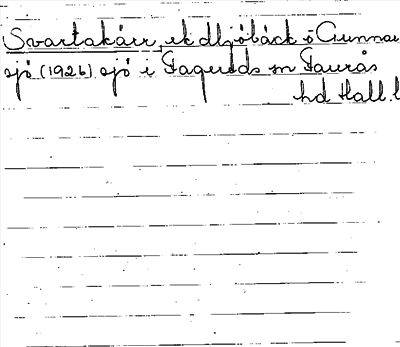 Svartakärr, ek dljöbäck i Gunnar
sjö (1926) sjö i Fagereds sn Faurås
hd Hall. l